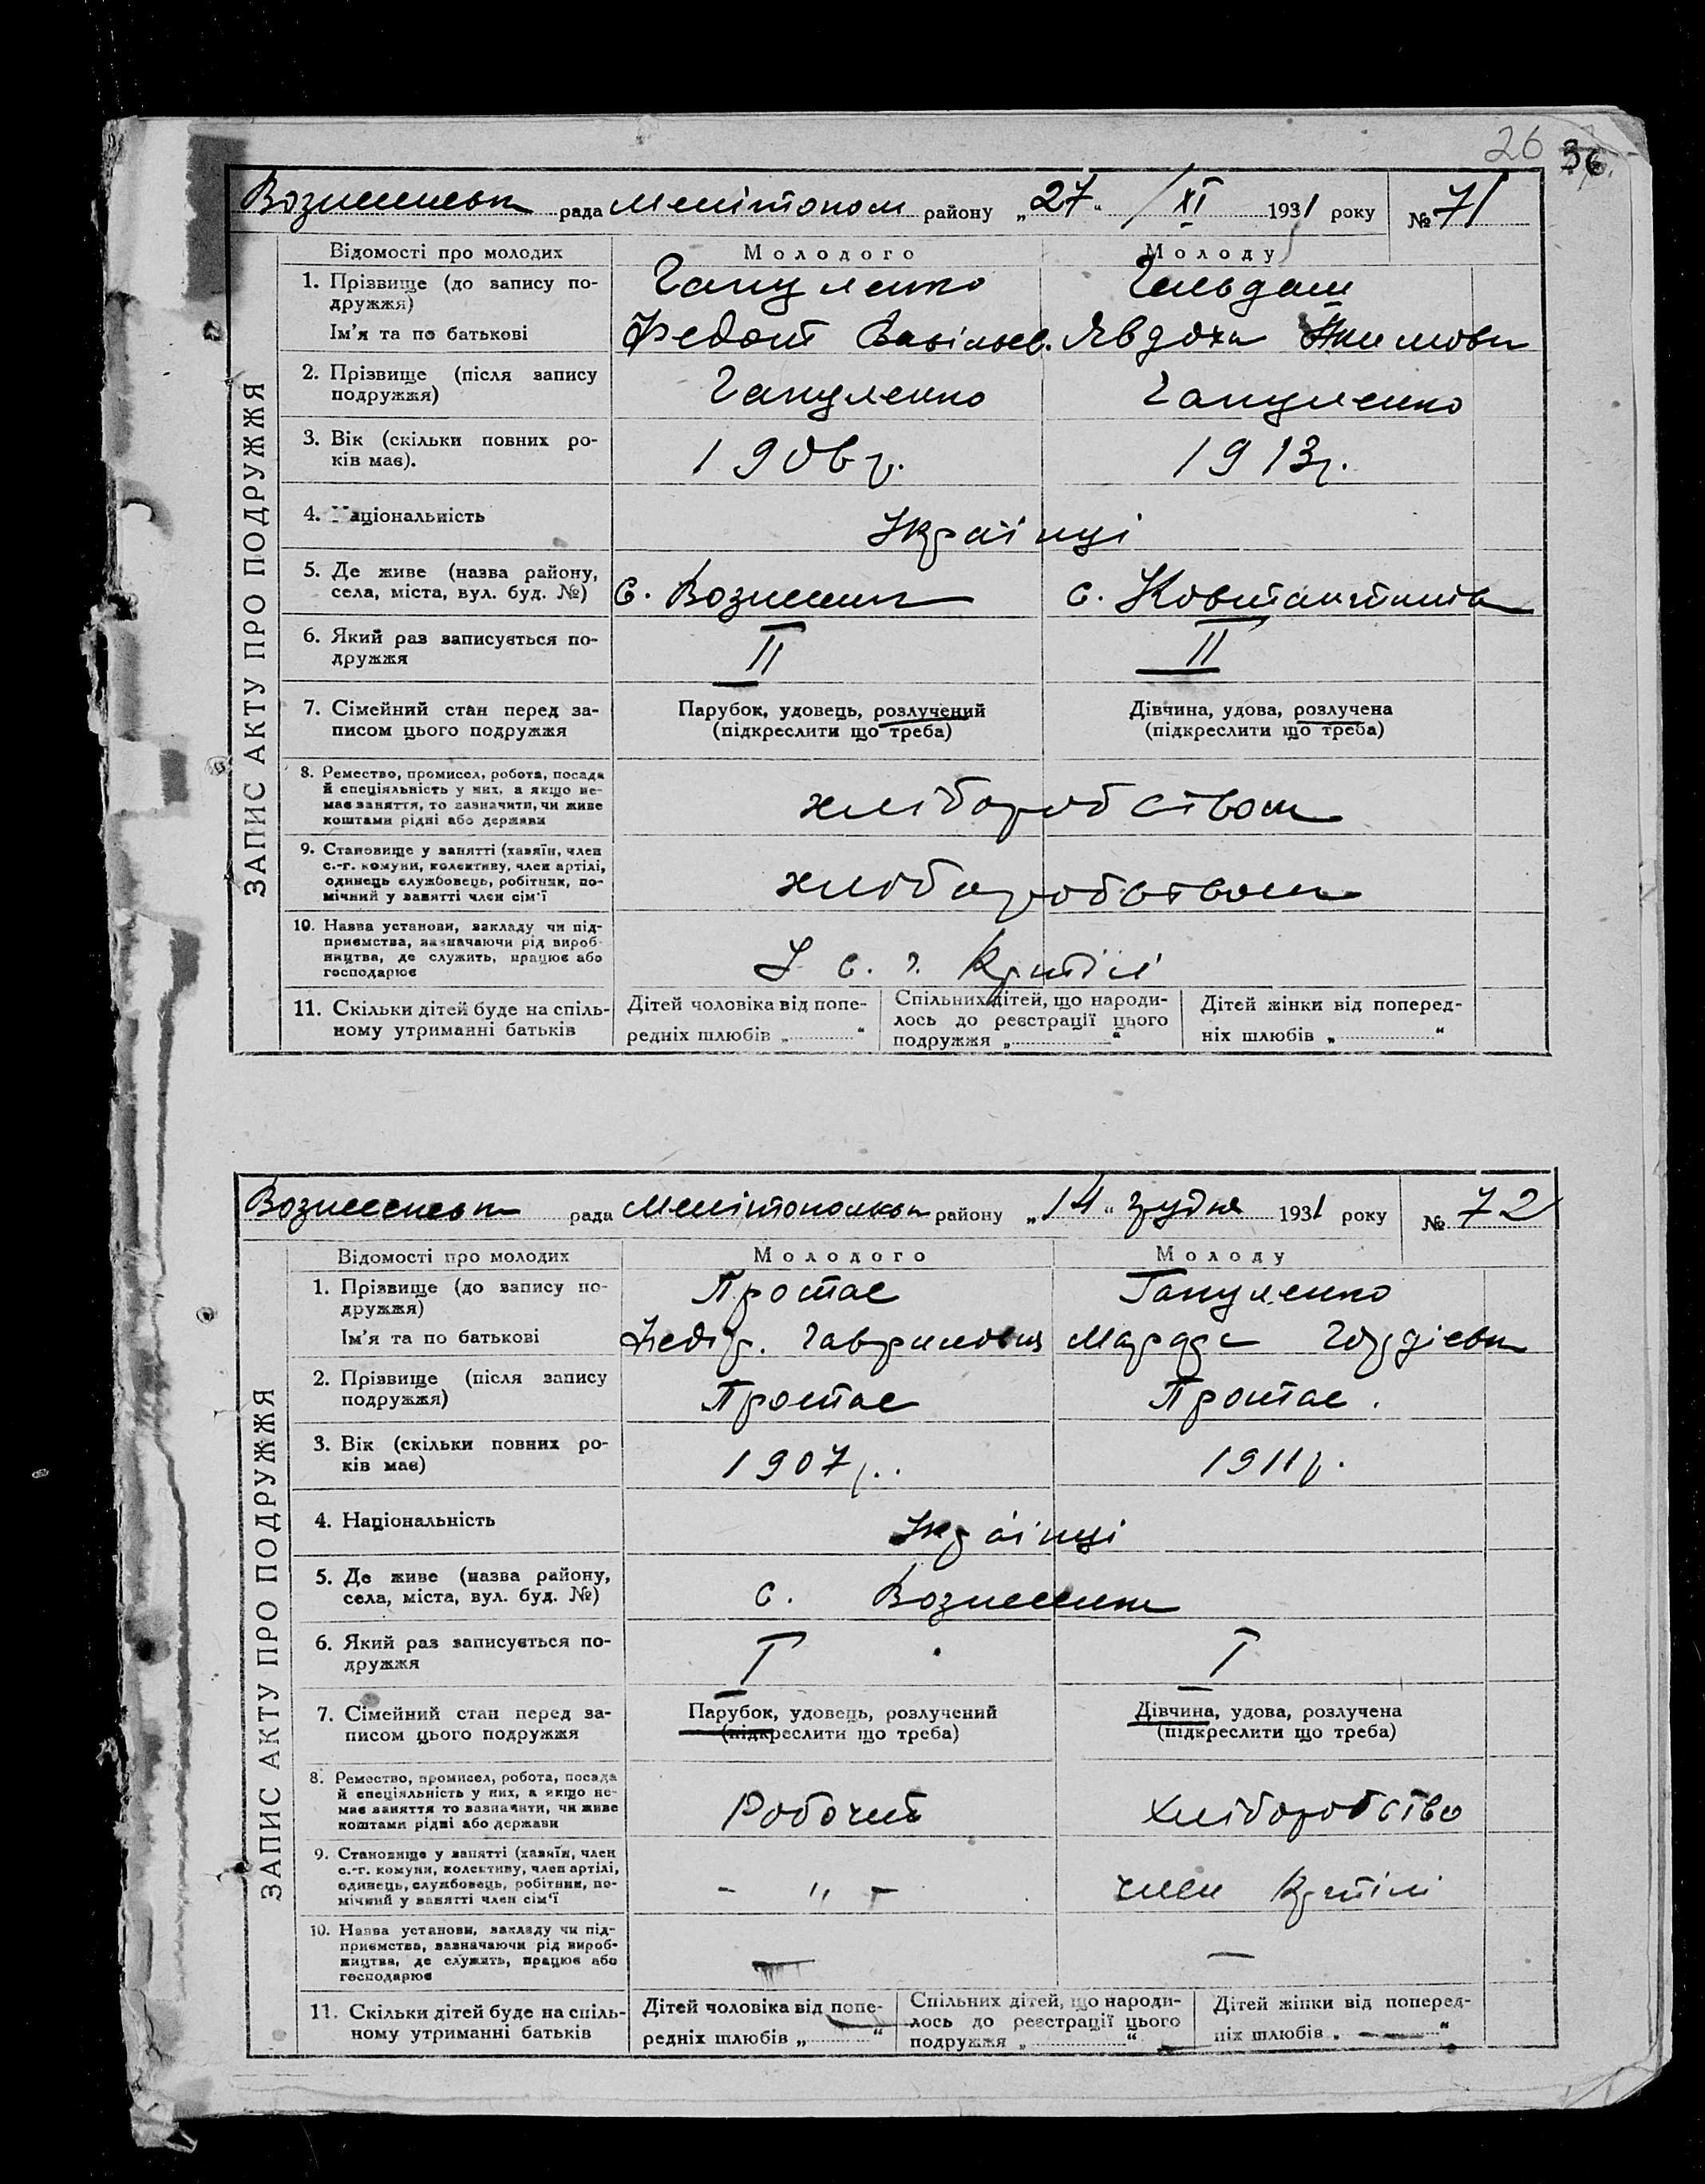 26 36
Вознесенськ рада Мелітопол району „27“ /XI 1931 року № 71
Відомості про молодих Молодого Молоду
1. Прізвище (до запису по-
дружжя) Гапуленко
Ім'я та по батькові Федот Васільєв. Явдоха Якимовн
2. Прізвище (після запису
подружжя) Гапуленко Гапуленко
3. Вік (скільки повних ро-
ків має). 1906 р. 1913 р.
4. Національність Українці
5. Де живе (назва району,
села, міста, вул. буд. №) с. Вознесен с. Ковстантинів
6. Який раз записується по-
дружжя II II
7. Сімейний стан перед за-
писом цього подружжя
Парубок, удовець, розлучений
(підкреслити що треба)
Дівчина, удова, розлучена
(підкреслити що треба)
8. Ремество, промисел, робота, посада
й спеціяльність у них, а якщо не-
має заняття, то зазначити, чи живе
коштами рідні або держави
хліборобством
9. Становище у занятті (хазяїн, член
с.-г. комуни, колективу, член артілі,
одинець службовець, робітник, по-
мічний у занятті член сім'ї
хліборобством
10. Назва установи, закладу чи під-
приємства, зазначаючи рід вироб-
ництва, де служить, працює або
господарює
У с. г. Артілі
11. Скільки дітей буде на спіль-
ному утриманні батьків
Дітей чоловіка від попе-
редніх шлюбів „ “
Спільних дітей, що народи-
лось до реєстрації цього
подружжя „ “
Дітей жінки від поперед-
ніх шлюбів „ “
ЗАПИС АКТУ ПРО ПОДРУЖЖЯ
Вознесенськ рада Мелітопольськ району „14“ грудня 1931 року № 72
Відомості про молодих Молодого Молоду
1. Прізвище (до запису по-
дружжя) Протас Гапуленко
Ім'я та по батькові Федір. Гаврилович Марфа Гордієвн
2. Прізвище (після запису
подружжя) Протас Протас.
3. Вік (скільки повних ро-
ків має) 1907 р. 1911 р.
4. Національність Українці
5. Де живе (назва району,
села, міста, вул. буд. №) с. Вознесен
6. Який раз записується по-
дружжя I I
7. Сімейний стан перед за-
писом цього подружжя
Парубок, удовець, розлучений
(підкреслити що треба)
Дівчина, удова, розлучена
(підкреслити що треба)
8. Ремество, промисел, робота, посада
й спеціяльність у них, а якщо не-
має заняття то зазначити, чи живе
коштами рідні або держави
Робочий Хліборобство
9. Становище у занятті (хазяїн, член
с.-г. комуни, колективу, член артілі,
одинець, службовець, робітник, по-
мічний у занятті член сім'ї
- " - член Артілі
10. Назва установи, закладу чи під-
приємства, зазначаючи рід вироб-
ництва, де служить, працює або
господарює
— —
11. Скільки дітей буде на спіль-
ному утриманні батьків
Дітей чоловіка від попе-
редніх шлюбів „ “
Спільних дітей, що народи-
лось до реєстрації цього
подружжя „ “
Дітей жінки від поперед-
ніх шлюбів „ — “
ЗАПИС АКТУ ПРО ПОДРУЖЖЯ